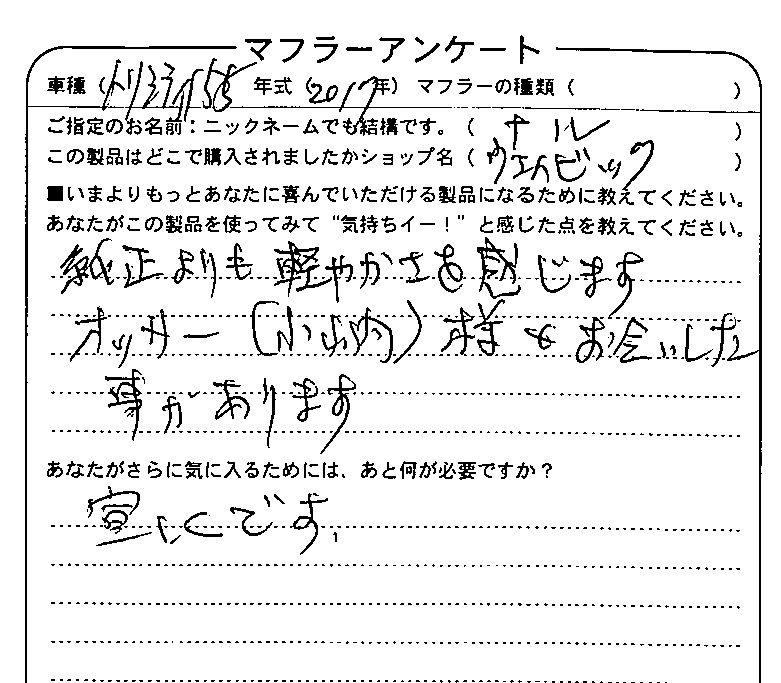 マフラーアンケート
車種（ﾊﾘﾐﾃｨｯﾄﾞ55 年式（2017年） マフラーの種類（ ）
ご指定のお名前：ニックネームでも結構です。（ ナル ）
この製品はどこで購入されましたかショップ名（ ウエビック ）
■いまよりもっとあなたに喜んでいただける製品になるために教えてください。
あなたがこの製品を使ってみて“気持ちイー！”と感じた点を教えてください。
純正よりも軽やかさを感じます
オッサー（小山内）様もお会いした
事があります
あなたがさらに気に入るためには、あと何が必要ですか？
宣しくです、